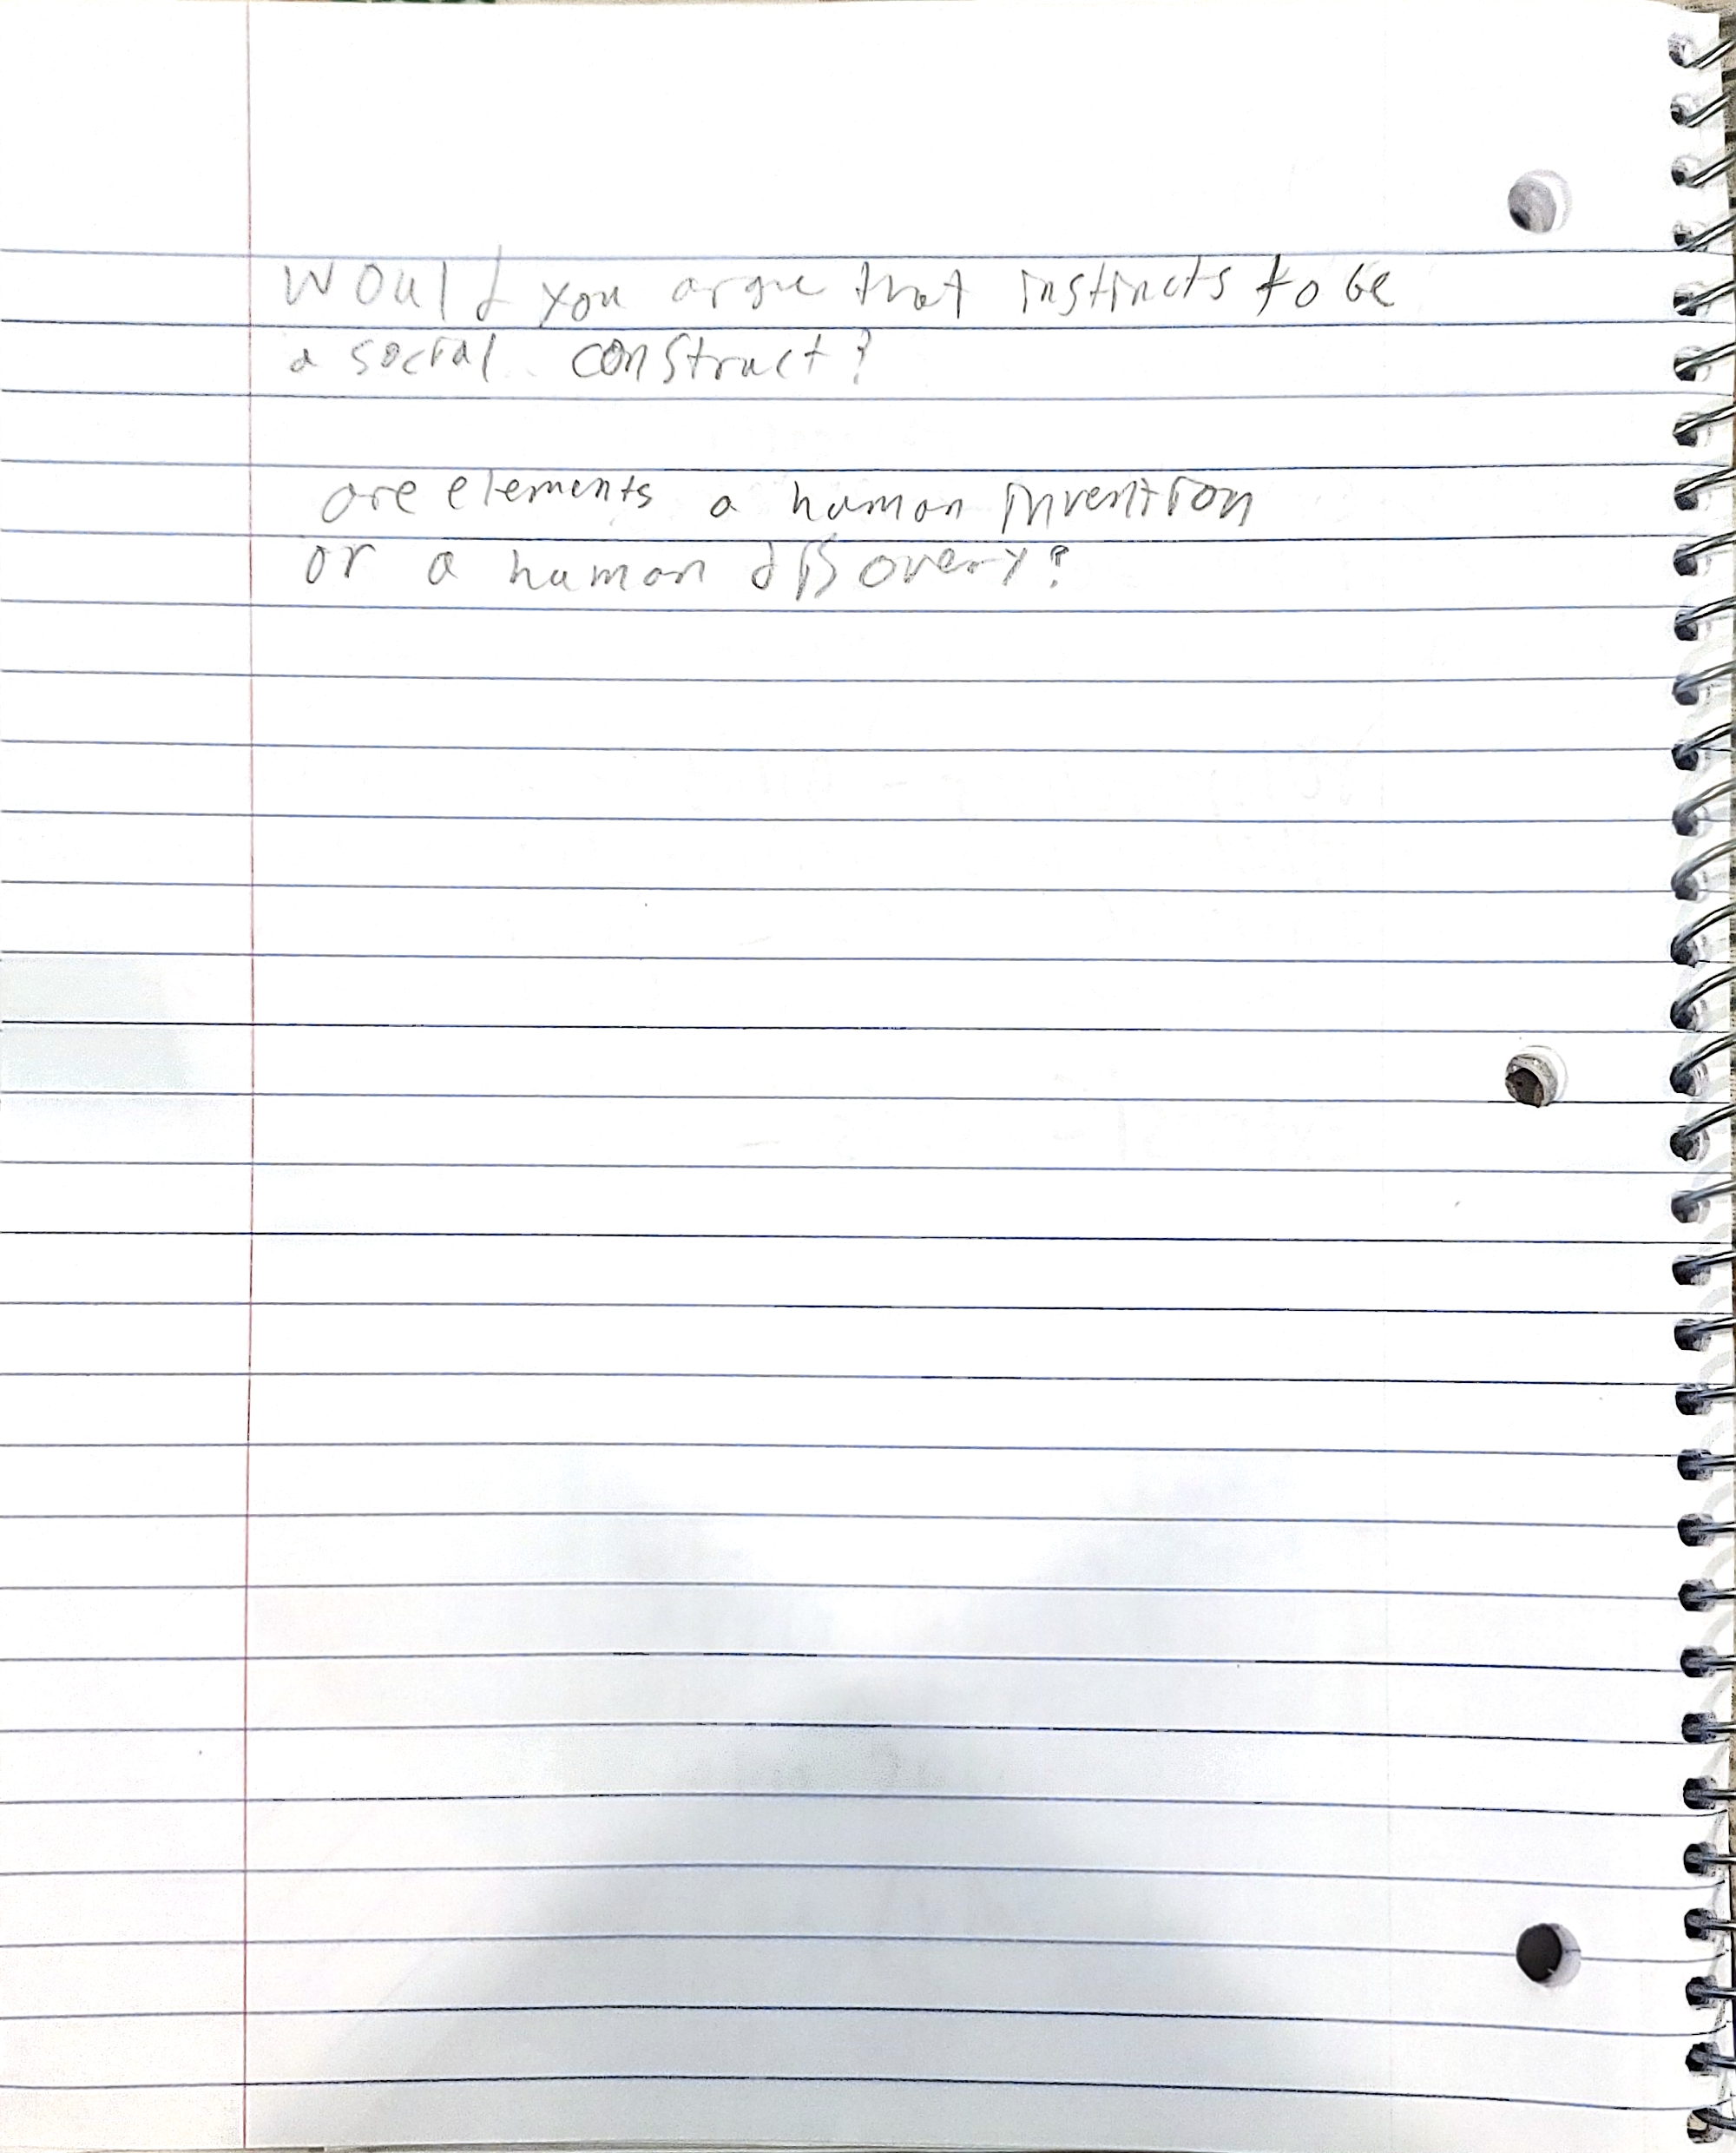 Would you argue that instincts to be
a social construct?
are elements a human invention
or a human disovery?